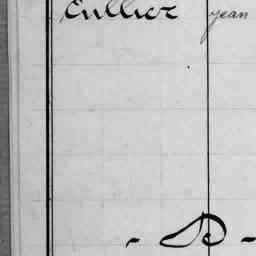 Cullier jean
- D -